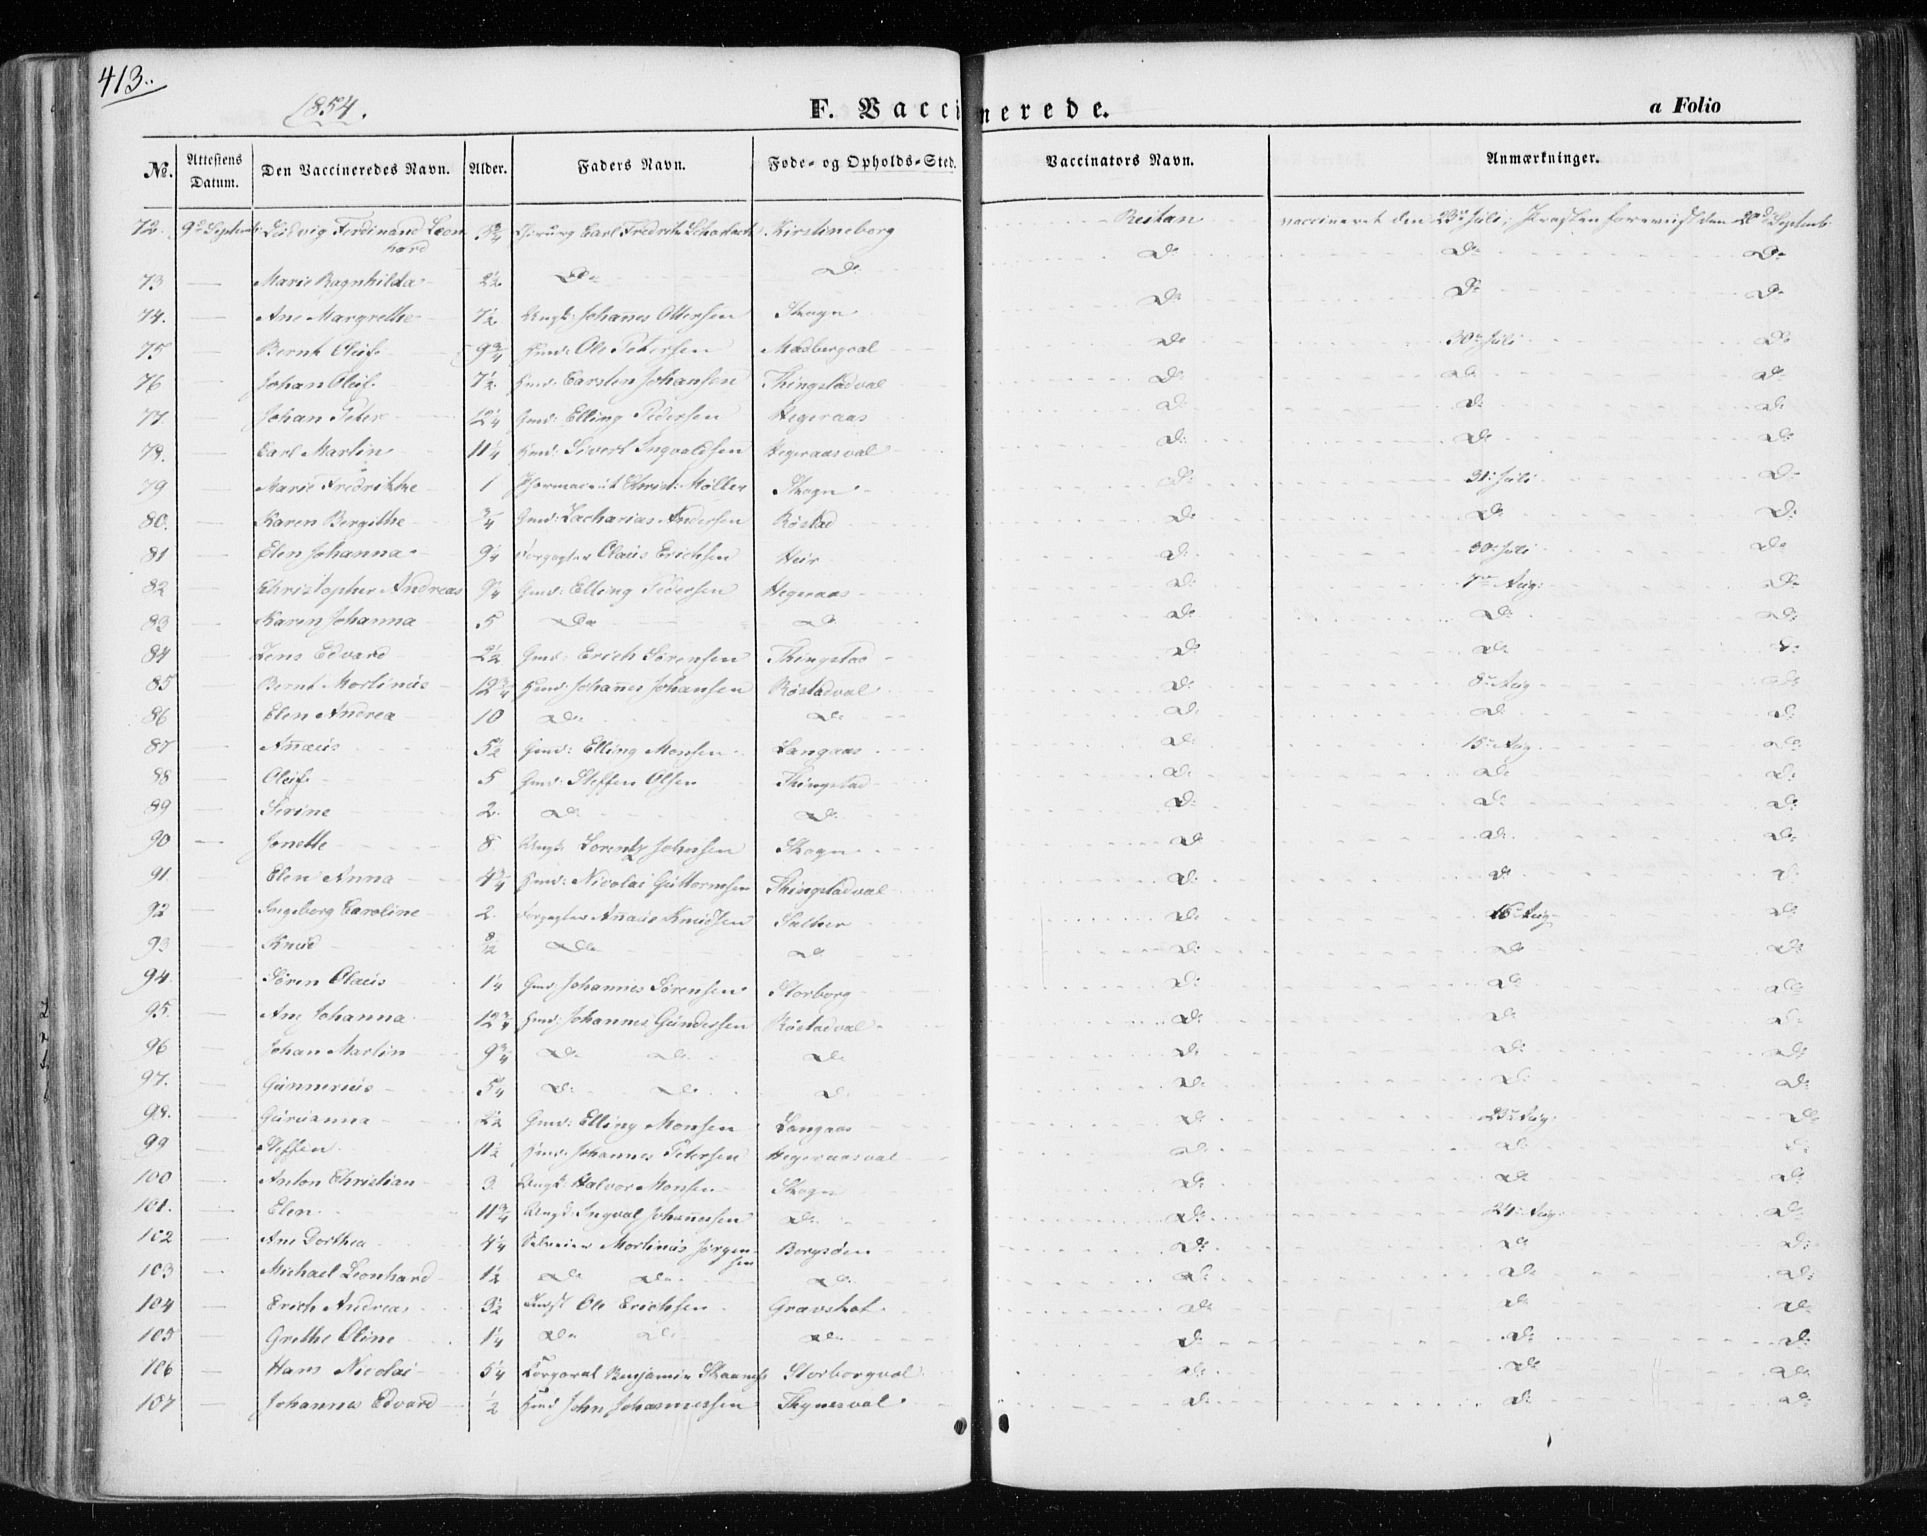 413.
1854.
F. Vaccinerede.
a Folio
No. Attestens Datum. Den Vaccineredes Navn. Alder. Faders Navn. Føde- og Opholds-Sted. Vaccinators Navn. Anmærkninger.
72. 9de Septemb. Ludvig Ferdinand Leonhard 5 3/4 Chirurg Carl Fredrik Kirstineborg Reitan vaccineret den 23de Juli; den 20de Septemb.
73 — Marie Ragnhilda 2 1/2 Do Do Do Do Do
74. — Ane Margrethe 7 1/2 Johanes Ottersen Skogn Do Do Do
75 — Bernt Oluf 9 3/4 Hmd: Ole Petersen Do 30te Juli Do
76 — Johan Oluf 7 1/2 Hmd: Carsten Johansen Thingstadval Do Do Do
77. — Johan Peter 12 1/4 Gmd: Elling Pedersen Hegeraas Do Do Do
78. — Carl Martin 11 1/4 Hmd: Sivert Ingvaldsen Hegeraasval Do Do Do
79 — Marie Fredrikke 1 Pharmaceut Christ: Møller Skogn Do 31te Juli Do
80. — Karen Bergithe 3/4 Gmd: Zacharias Andersen Røstad Do Do Do
81 — Elen Johanna 9 1/4 Forpagter Olaus Erichsen Heir Do 30te Juli Do
82 — Christopher Andreas 9 1/4 Gmd: Elling Pedersen Hegeraas Do 7de Aug: Do
83 — Karen Johanna 5 Do Do Do Do Do
84 — Jens Edvard 2 1/2 Gmd: Erich Sørensen Thingstad Do Do Do
85 — Bernt Martinus 12 3/4 Hmd: Johanes Johansen Røstadval Do 8de Aug Do
86 — Elen Andrea 10 Do Do Do Do Do
87 — Añæus 5 1/2 Gmd: Elling Monsen Langaas Do 15de Aug. Do
88 — Oluf 5 Gmd: Steffen Olsen Thingstad Do Do Do
89 — Serine 2. Do Do Do Do Do
90 — Jonette 8 Lorentz Johnsen Skogn Do Do Do
91 — Elen Anna 4 3/4 Hmd: Nicolai Guttormsen Thingstadval Do Do Do
92 — Ingeborg Caroline 2. Forpagter Añæus Knudsen Salther Do 16de Aug Do
93 — Knud 8/12 Do Do Do Do Do
94. — Søren Olaus 1 1/4 Gmd: Johannes Sørensen Storborg Do Do Do
95. — Ane Johanna 12 3/4 Hmd: Johannes Gundersen Røstadval Do Do Do
96 — Johan Martin 9 3/4 Do Do Do Do Do Do
97. — Gunnerius 5 1/4 Do Do Do Do Do Do
98. — Gurianna 2 1/2 Gmd: Elling Monsen Langaas Do 23de Aug. Do
99 — Steffen 11 1/2 Hmd: Johannes Petersen Hegeraasval Do Do Do
100 — Anton Christian 3 Halvor Monsen Skogn Do Do Do
101. — Elen 11 3/4 Ingval Johannesen Do Do 24de Aug Do
102 — Ane Dorthea 4 1/4 Selveier Martinus Jørgensen Borgsøen Do Do Do
103 — Michael Leonhard 1 1/2 Do Do Do Do Do Do
104 — Erich Andreas 3 1/2 Ole Erichsen Gravshot Do Do Do
105 — Grethe Oline 1 1/4 Do Do Do Do Do Do
106 — Hans Nicolai 5 1/4 Korporal Benjamin Storborgval Do Do Do
107 — Johannes Edvard 1/2 Hmd John Johannessen Thynesval Do Do Do